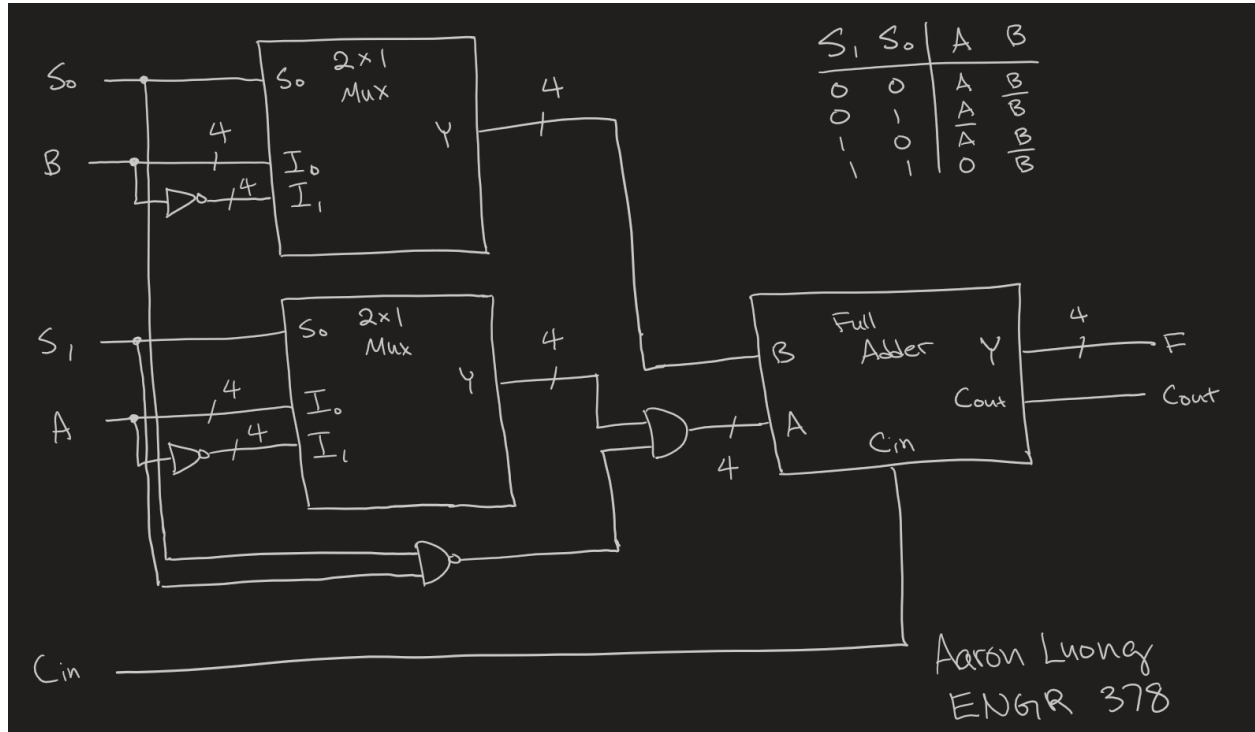 S₀
B
S₀
2×1
Mux
4
I₀
4
I₁
Y
4
S₁ S₀ A B
0 0 A B
0 1 A B̅
1 0 A̅ B
1 1 0 B̅
S₁
A
S₀
2×1
Mux
4
I₀
4
I₁
Y
4
4
B
A
Full
Adder
Y
Cout
Cin
4
F
Cout
Cin
Aaron Luong
ENGR 378